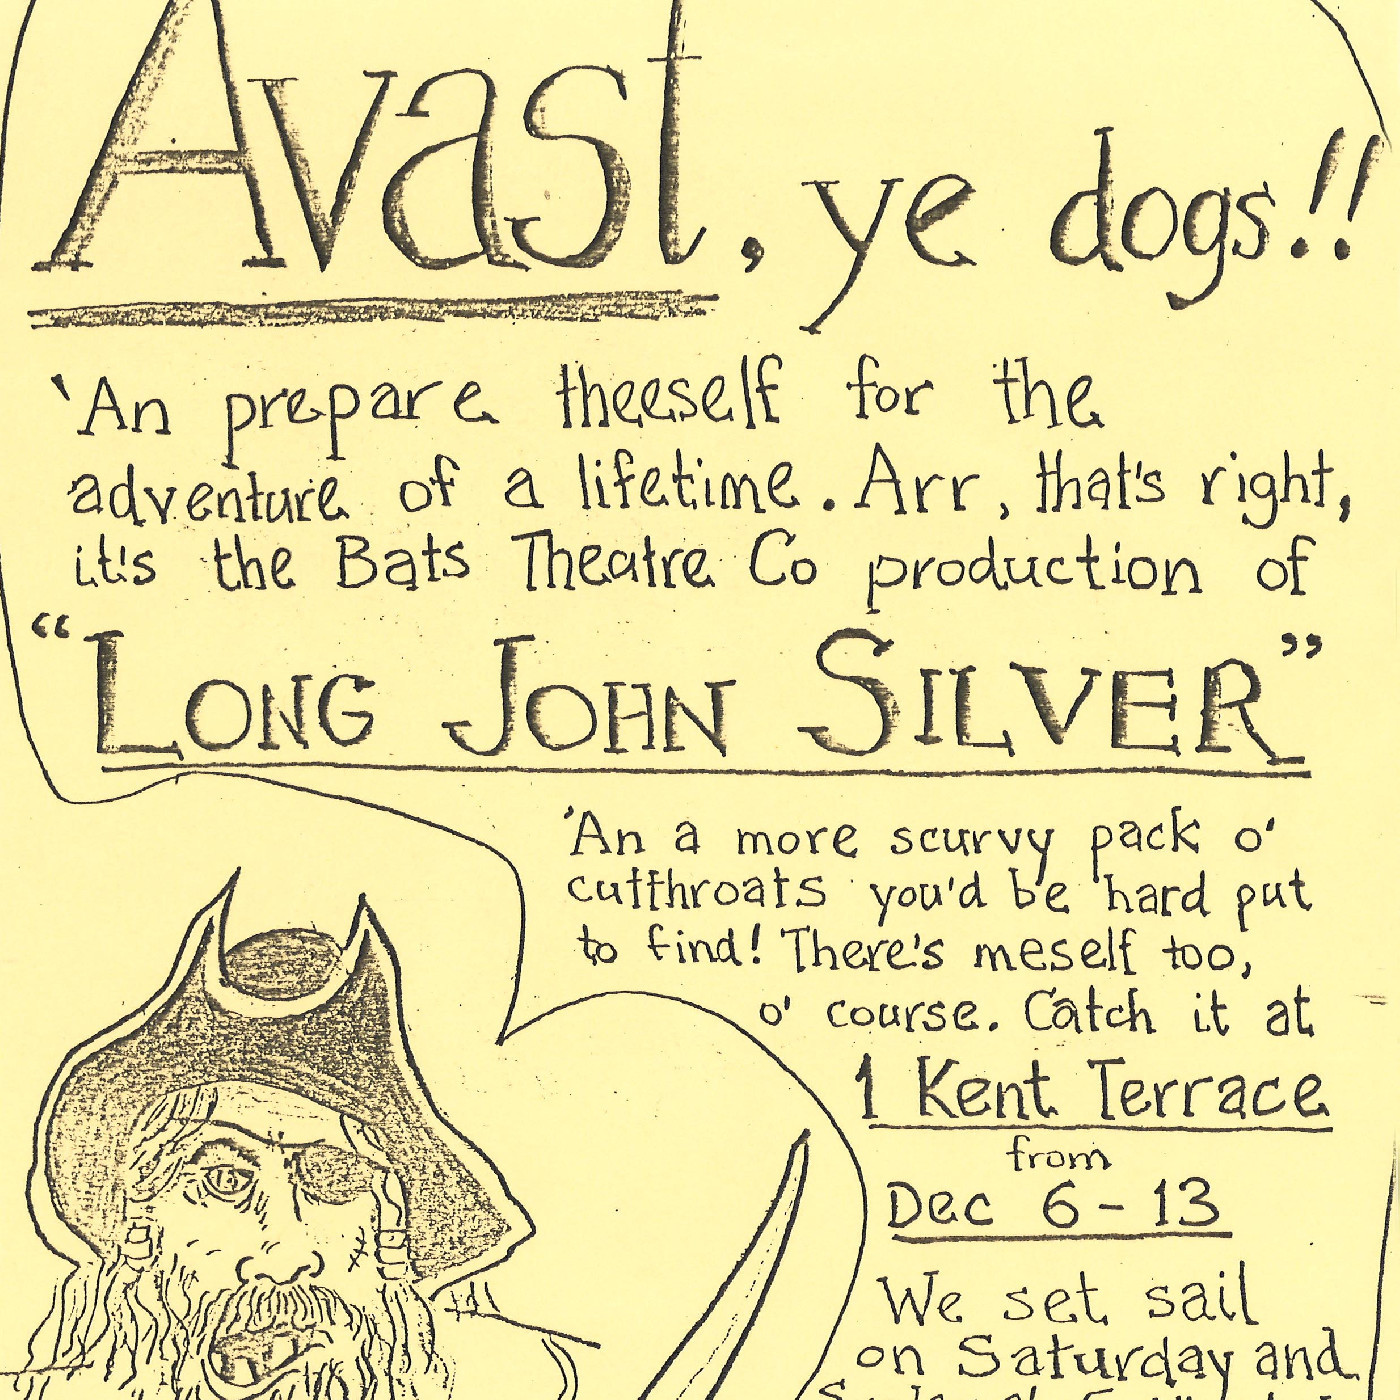 Avast, ye dogs!!
'An prepare theeself for the
adventure of a lifetime. Arr, that's right,
it's the Bats Theatre Co production of
“LONG JOHN SILVER”
'An a more scurvy pack o'
cutthroats you'd be hard put
to find! There's meself too,
o' course. Catch it at
1 Kent Terrace
from
Dec 6-13
We set sail
on Saturday and